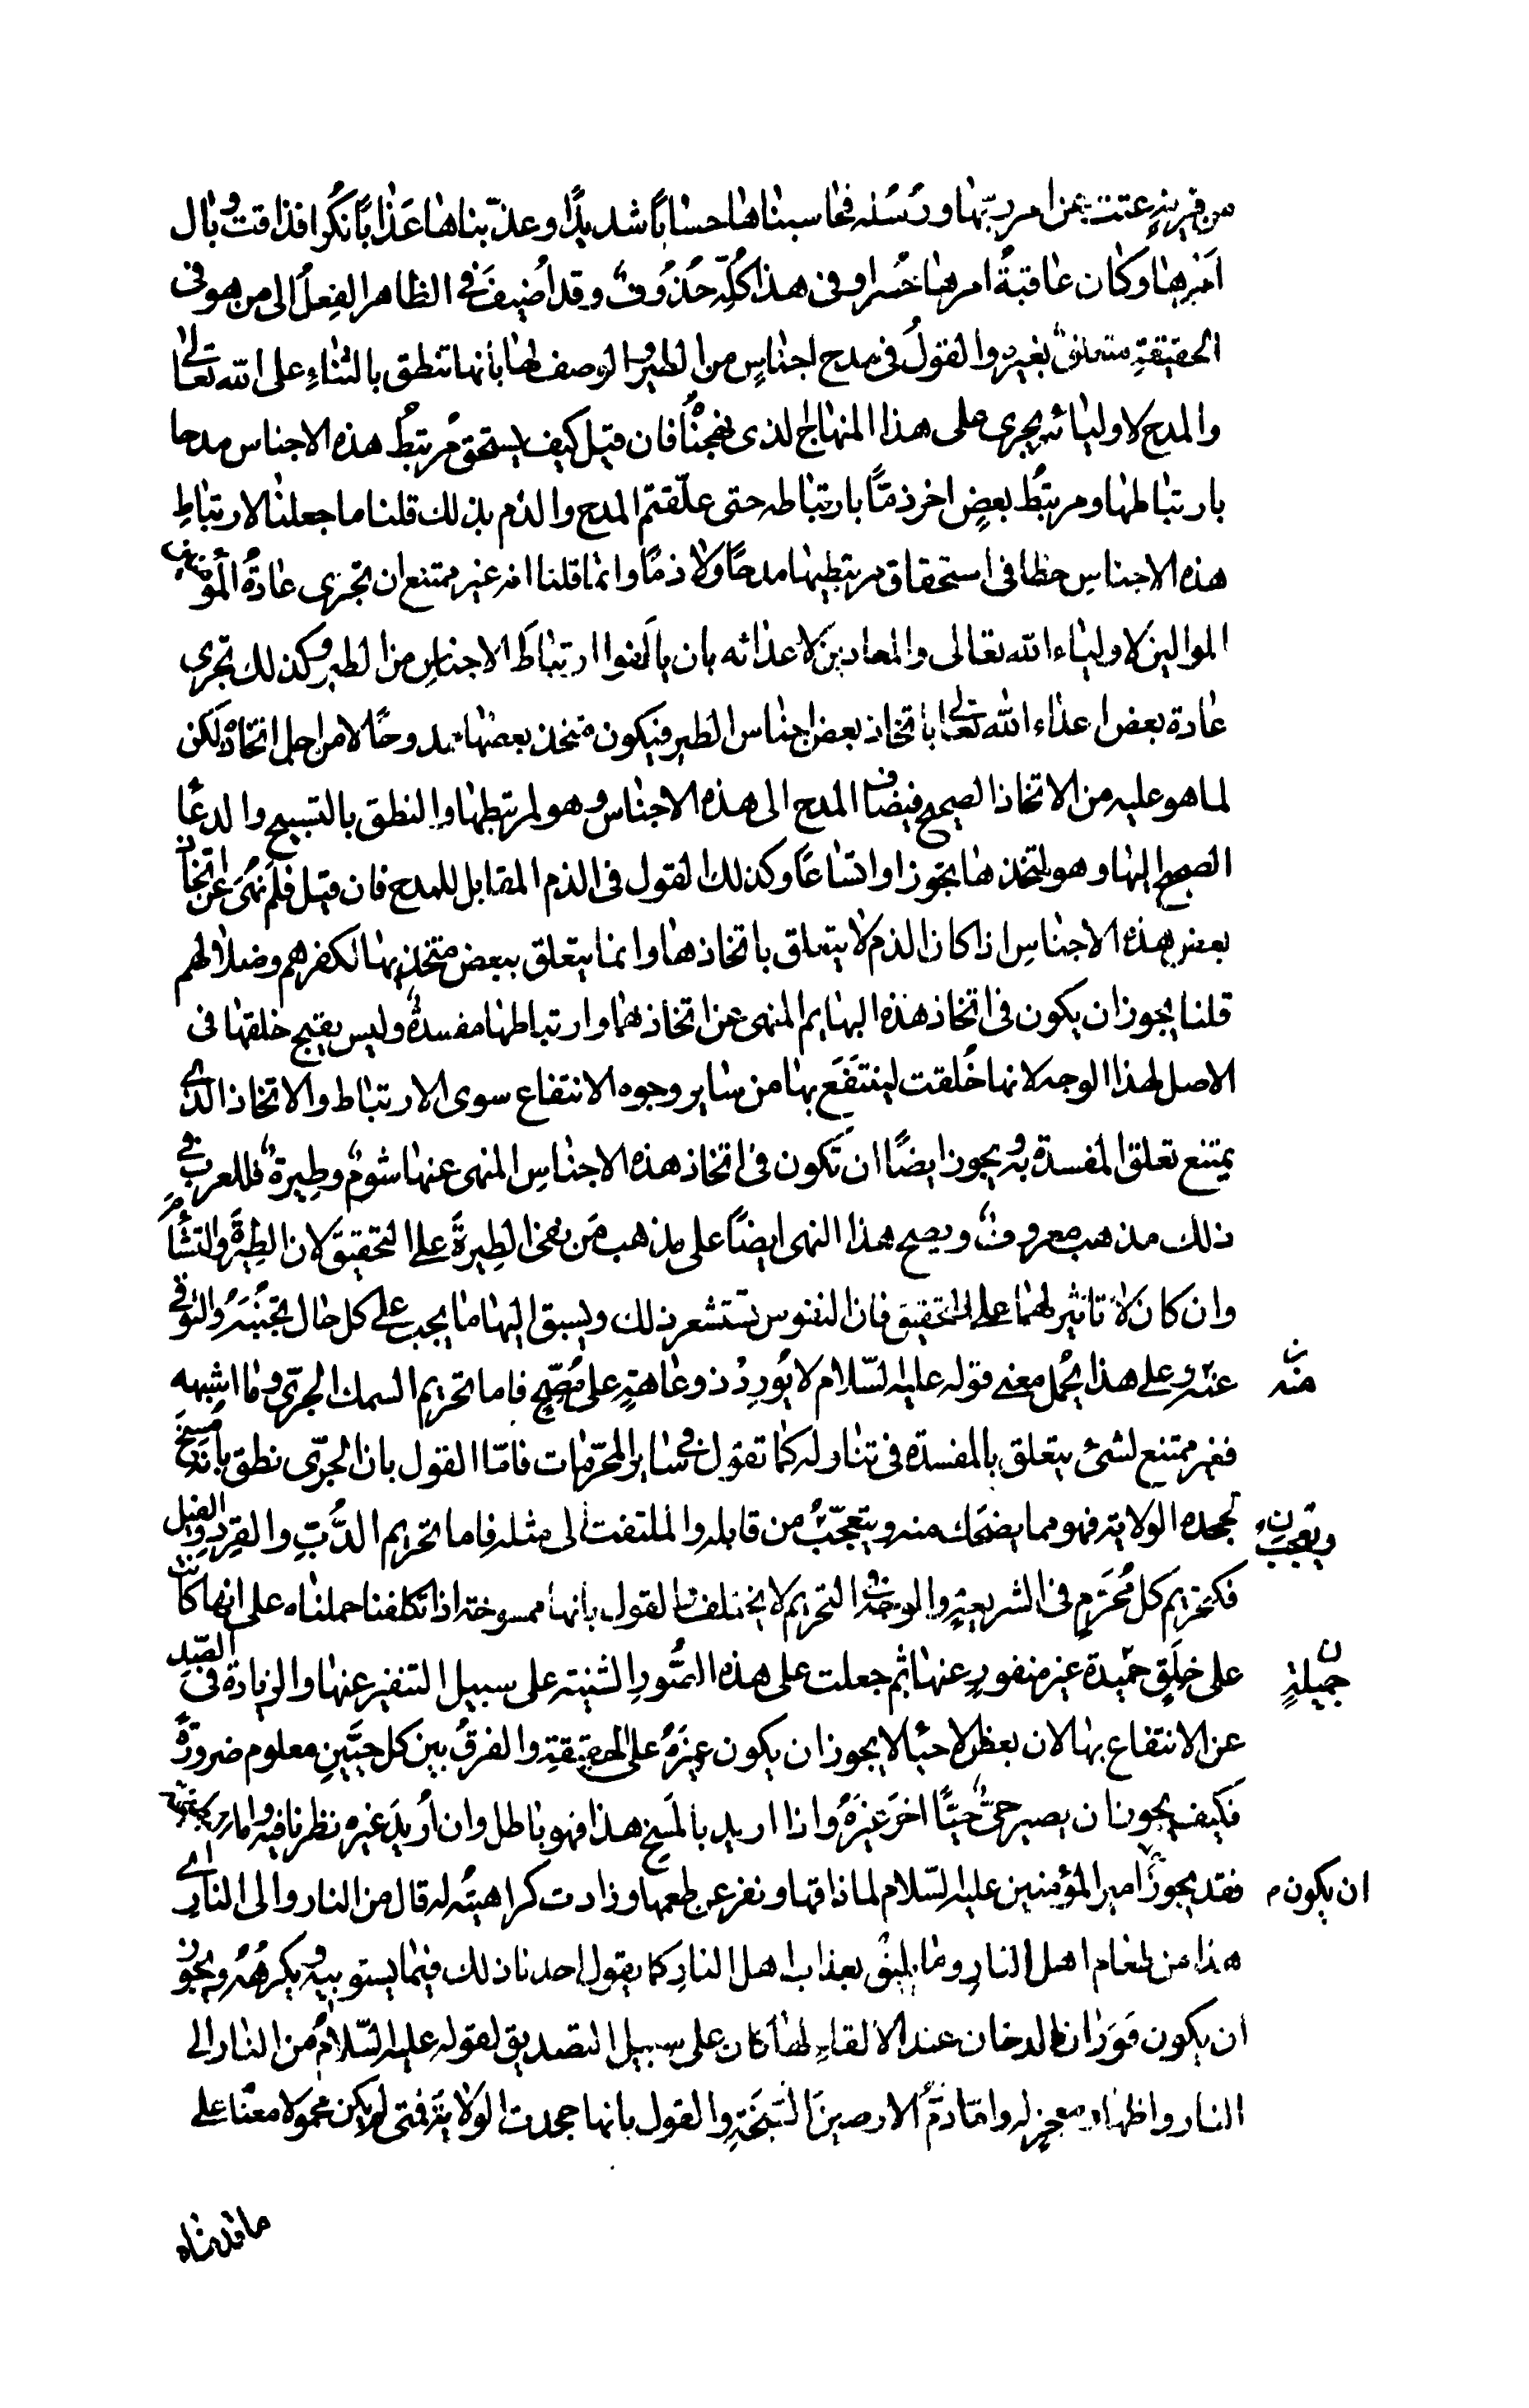 من قرية عتت عن امر ربّها ورُسُله فحاسبناها حسابًا شديدًا وعذّبناها عَذابًا نكُرا فذاقت وبال
اَمْرِها وكان عاقبةُ امرها خُسرا وفى هذا كُلِّه حُذُوفٌ وقد اُضيفَ فى الظاهر الفِعلُ الى من هو فى
الحقيقةِ متعلقٌ بغيره والقولُ فى مدح اجناسٍ من الطير والوصف لها بأنها تنطق بالثناءِ على الله تعالى
والمدح لاوليائه يجرى على هذا المنهاج الذى نهجناُه فان قيل كيف يستحق مُرتبطُ هذه الاجناس مدحا
بارتباطها ومرتبطُ بعضٍ اخر ذمًّا بارتباطه حتى علّقتم المدح والذم بذلك قلنا ما جعلنا لارتباطِ
هذه الاجناسِ حظا فى استحقاق مرتبطيها مدحًا ولا ذمًّا وانما قلنا انه غير ممتنع ان تجرى عادةُ المؤمنين
الموالين لاولياء الله تعالى والمعادين لاعدائه بان يالَفوا ارتباطَ الاجناسِ من الطير وكذلك تجرى
عادة بعض اعداء الله تعالى باتخاذ بعض اجناس الطير فيكون متخذ بعضها ممدوحًا لا من اجل اتخاذه لكن
لما هو عليه من الاتخاذ الصحيح فيضاف المدح الى هذه الاجناس وهو لمرتبطها والنطق بالتسبيح والدعا
الصحيح اليها وهو لمتخذها تجوزا واتساعًا وكذلك القول فى الذم المقابل للمدح فان قيل فلم نُهى عن اتخاذ
بعض هذه الاجناسِ اذا كان الذم لا يتعلق باتخاذها وانما يتعلق ببعض متخذيها لكفرهم وضلالهم
قلنا يجوز ان يكون فى اتخاذ هذه البهايم المنهى عن اتخاذها وارتباطها مفسدةٌ وليس يقبح خلقها فى
الاصل لهذا الوجه لانها خُلقت لينتفَعَ بها من ساير وجوه الانتفاع سوى الارتباط والاتخاذ الذى
يمتنع تعلق المفسدة به ويجوز ايضًا ان تكون فى اتخاذ هذه الاجناسِ المنهى عنها شومٌ وطِيرةٌ فللعرب فى
ذلك مذهب معروفٌ ويصح هذا النهى ايضًا على مذهب مَن نفى الطِيرةَ على التحقيق لان الطِيَرةَ والتشأم
وان كان لا تاثير لهما على التحقيق فان النفوس تستشعر ذلك ويسبق اليها ما يجب على كل حال تجنُّبَهُ والتوقى
عنه وعلى هذا يُحمل معنى قوله عليه السّلام لا يُورِدُ ذو عاهةٍ على مُصِحٍّ فاما تحريم السمك الجرّى وما اشبهه
منه
فغير ممتنع لشئ يتعلق بالمفسدة فى تناوله كما تقول فى ساير المحرّمات فامّا القول بان الجرّى نطق بأنه مُسِخَ
لجحده الولاية فهو مما يضحك منه ويتعجّبُ من قايله والملتفت الى مثله فاما تحريم الدُّبِّ والقِرد والفيل
ويعجب
فكتحريم كل مُحَرَمٍ فى الشريعةِ والوجه فى التحريم لا يختلف والقول بانها ممسوخة اذا تكلفنا حملناه على انها كانت
على خِلَقٍ حميدة غير منفورٍ عنها ثم جعلت على هذه الصُّورِ الشنية على سبيل التنفير عنها والزيادة فى الصّد
جميلةٍ
عن الانتفاع بها لان بعض الاحيا لا يجوز ان يكون غيرَهُ على الحقيقةِ والفرقُ بين كل حيَّينِ معلوم ضرورةً
فكيف يجوز ان يصير حىٌّ حيًّا اخرَ غيرَهُ واذا اريد بالمَسخِ هذا فهو باطل وان اُريدَ غيره نظرنا فيه واما
فقد يجوزُ امير المؤمنين عليه السّلام لما ذاقها ونفر عن طعمها وزادت كراهيتُه له قال من النار والى النار اى
ان يكون
هذا من طعام اهل النارِ وما يليقُ بعذاب اهل النارِ كما يقول احدنا ذلك فيما يستوبيه ويكرهُهُ ويجوز
ان يكون فَوَرَان الدخان عند الالقاءِ لها كان على سبيل التصديق لقوله عليه السّلامُ من النار الى
النار واظهار معجزٍ له وامّا ذمُّ الارضينَ السَّبَخَةِ والقول بانها جحدت الولاية فمتى لم يكن محمولا معناه على
ما قدمناه